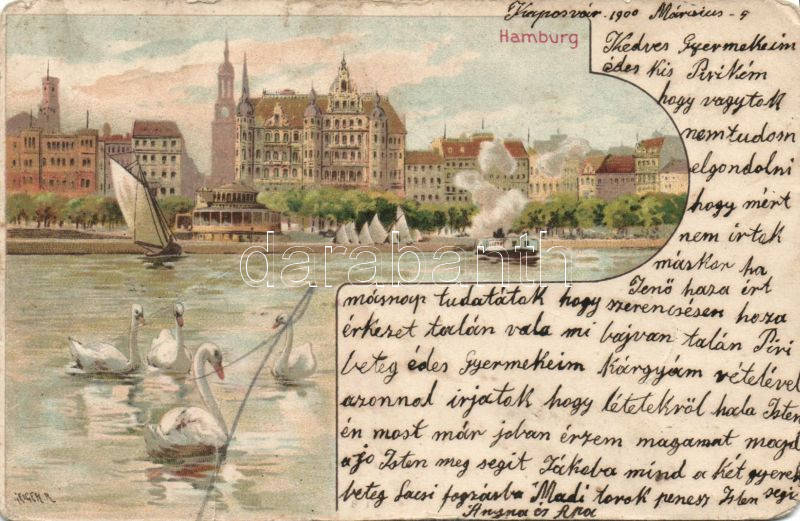 Kaposvár 1900 Március - 9
Hamburg
Kedves Gyermekeim
édes kis Pirikém
hogy vagytok
nemtudom
elgondolni
hogy mért
nem irtok
máskor ha
Jenő haza ért
másnap tudatátok hogy szerencsésen hoza
érkezet talán vala mi bajvan talán Piri
beteg édes Gyermekeim Kárgyám vételével
azonnol irjatok hogy létetekröl hala Isten
én most már joban érzem magamat majd
a jo Isten meg segit Jákoba mind a két gyerek
beteg Lacsi fogzásba Mádi torok penesz Isten segit
Anyna és Apa
darabanth